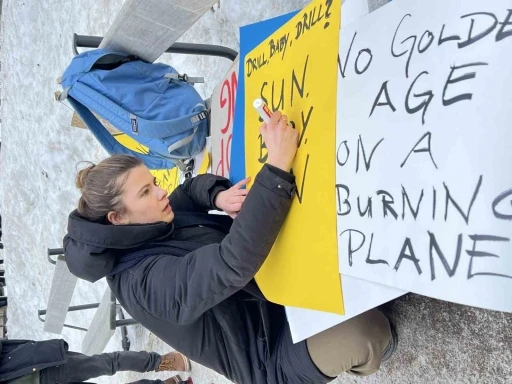 DRILL, BABY, DRILL?
SUN,
NO GOLDE
AGE
ON A
BURNING
PLANE